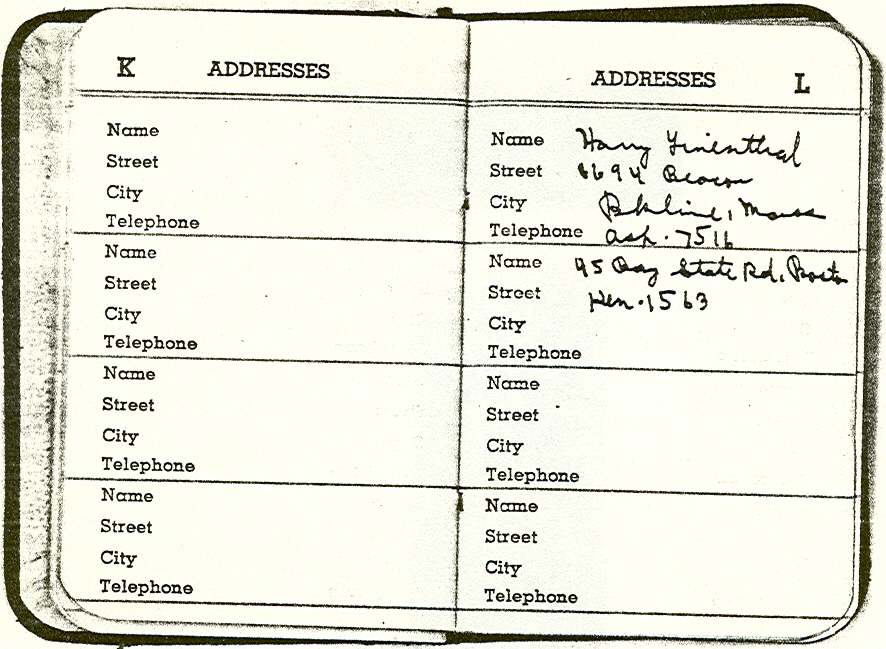 K ADDRESSES
Name
Street
City
Telephone
Name
Street
City
Telephone
Name
Street
City
Telephone
Name
Street
City
Telephone
ADDRESSES L
Name Harry Linenthal
Street Beacon
City Bkline, Mass
Telephone Asp. 7516
Name 95 Bay State Rd, Boston
Street Ken. 1563
City
Telephone
Name
Street
City
Telephone
Name
Street
City
Telephone